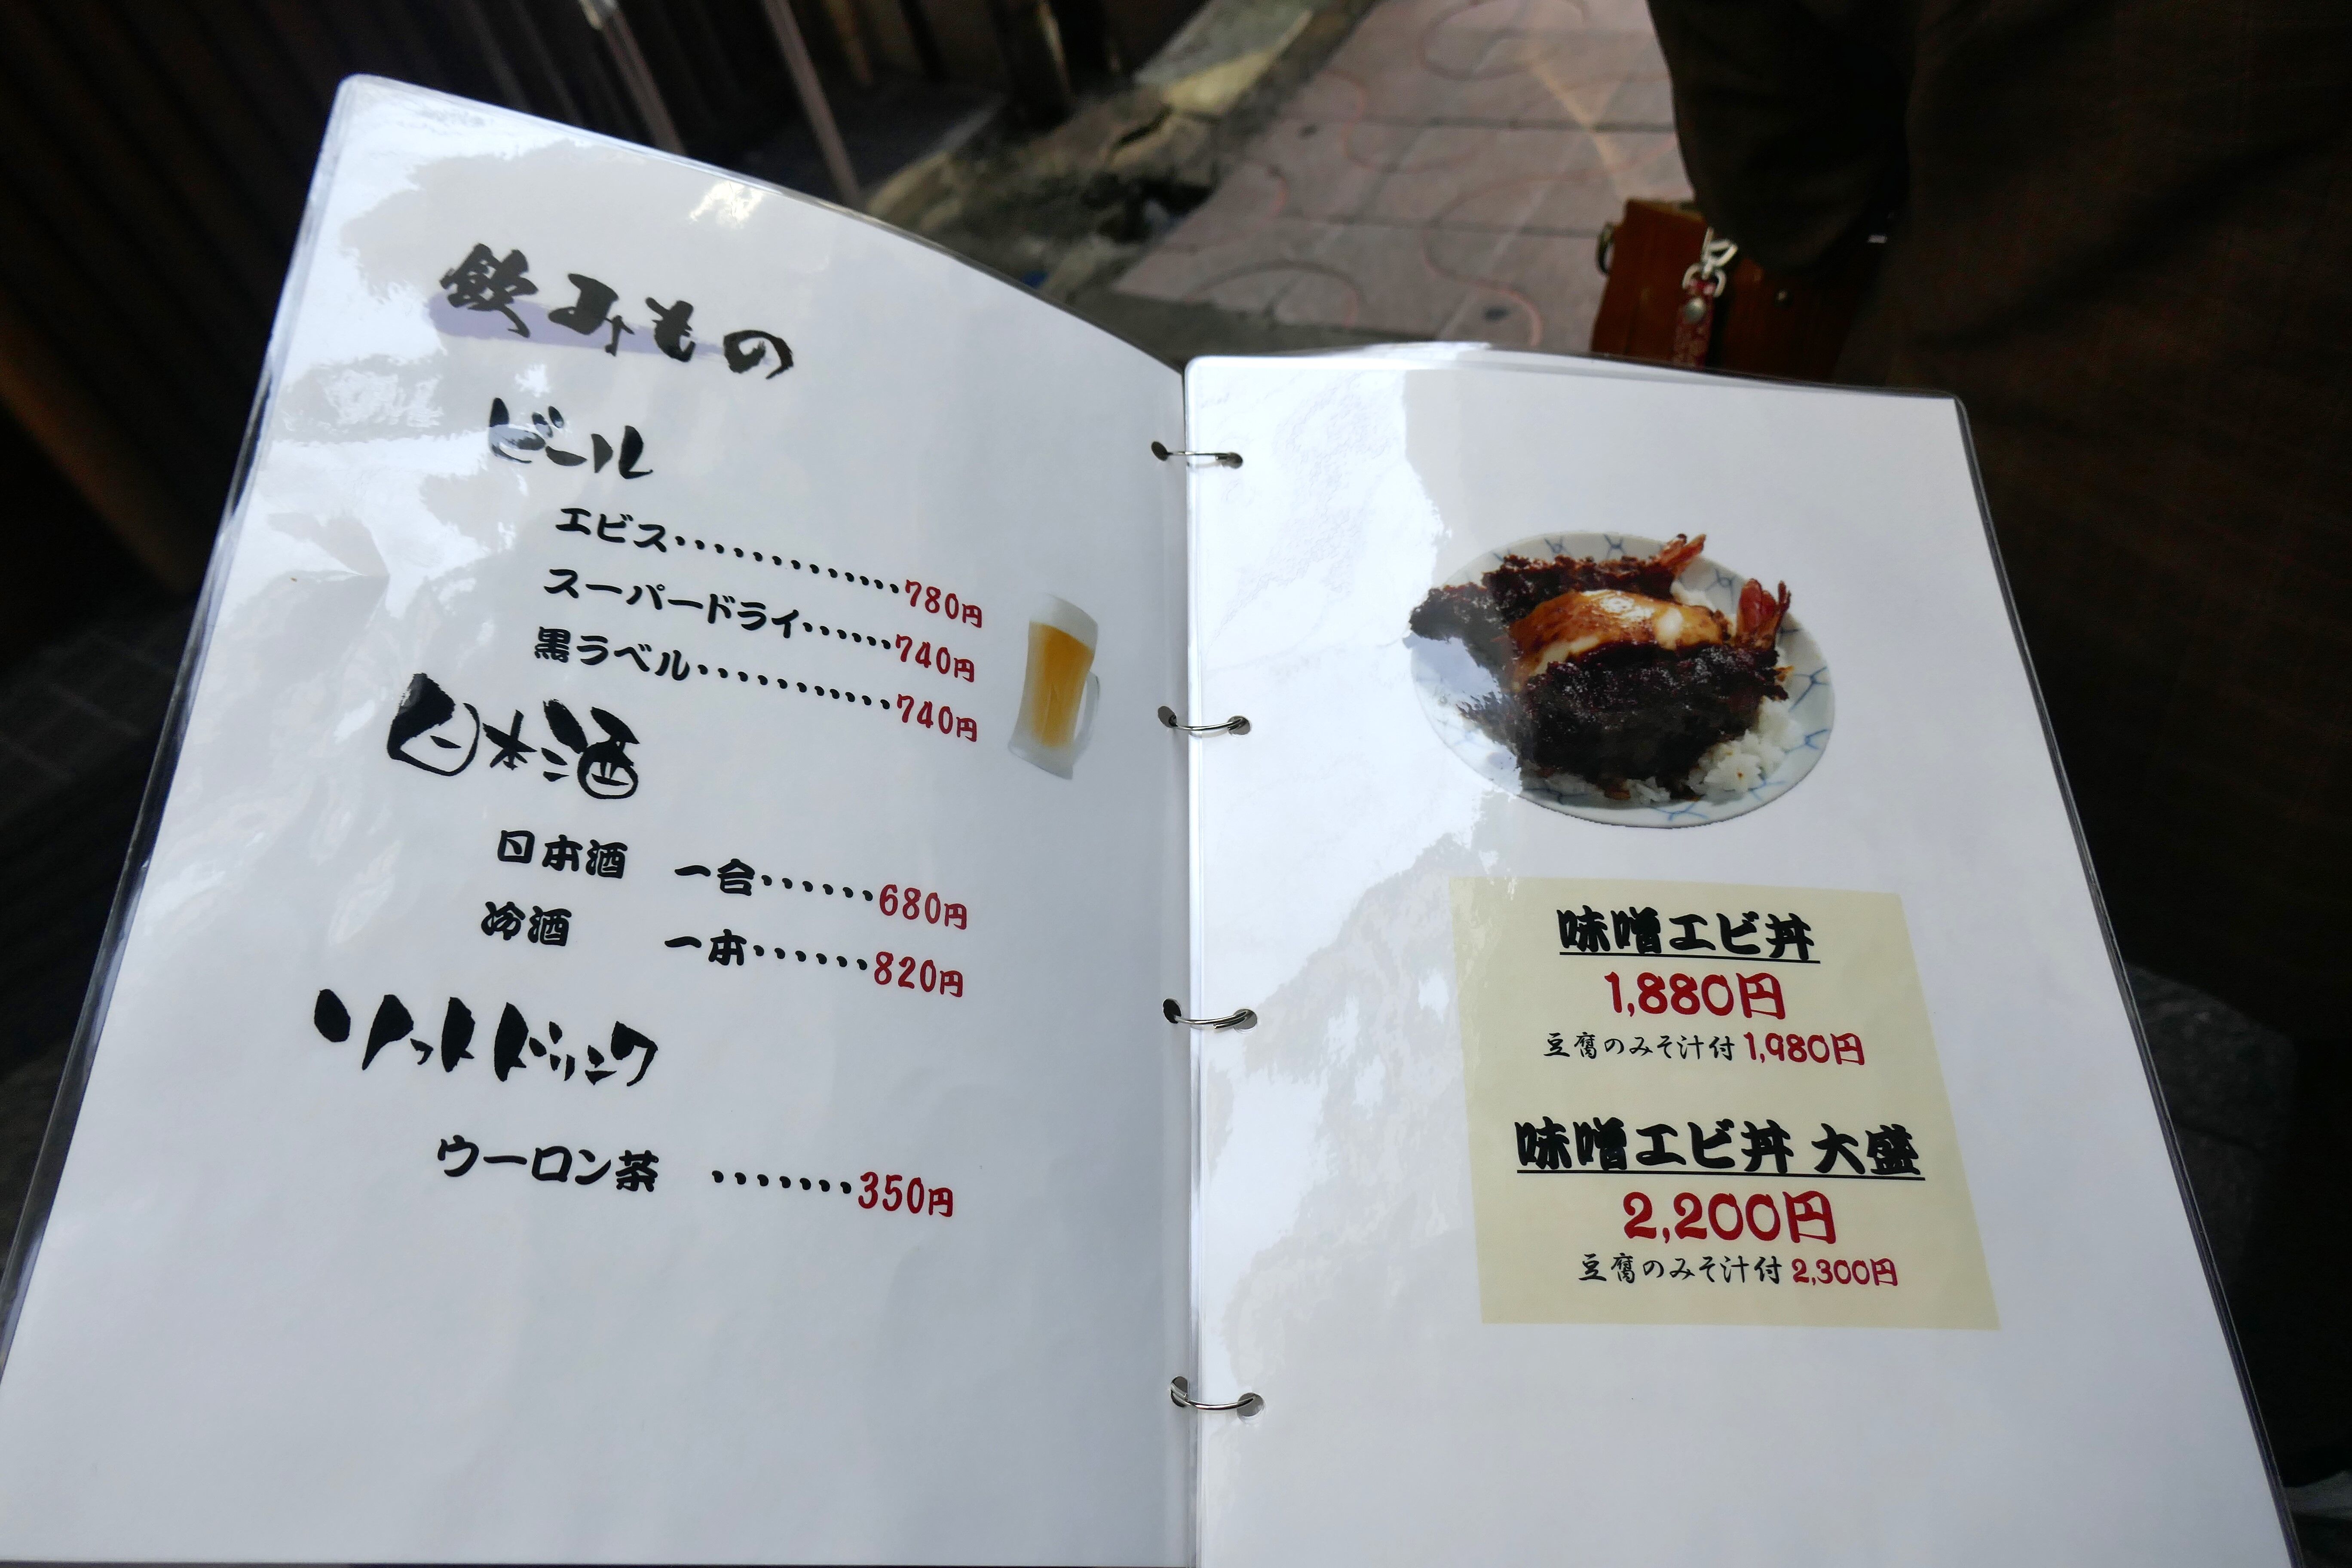 飲みもの
ビール
エビス・・・・・・・・・・・・780円
スーパードライ・・・・・・740円
黒ラベル・・・・・・・・・・・740円
日本酒
日本酒 一合・・・・・・680円
冷酒 一本・・・・・・820円
ソフトドリンク
ウーロン茶 ・・・・・・・350円
味噌エビ丼
1,880円
豆腐のみそ汁付 1,980円
味噌エビ丼 大盛
2,200円
豆腐のみそ汁付 2,300円